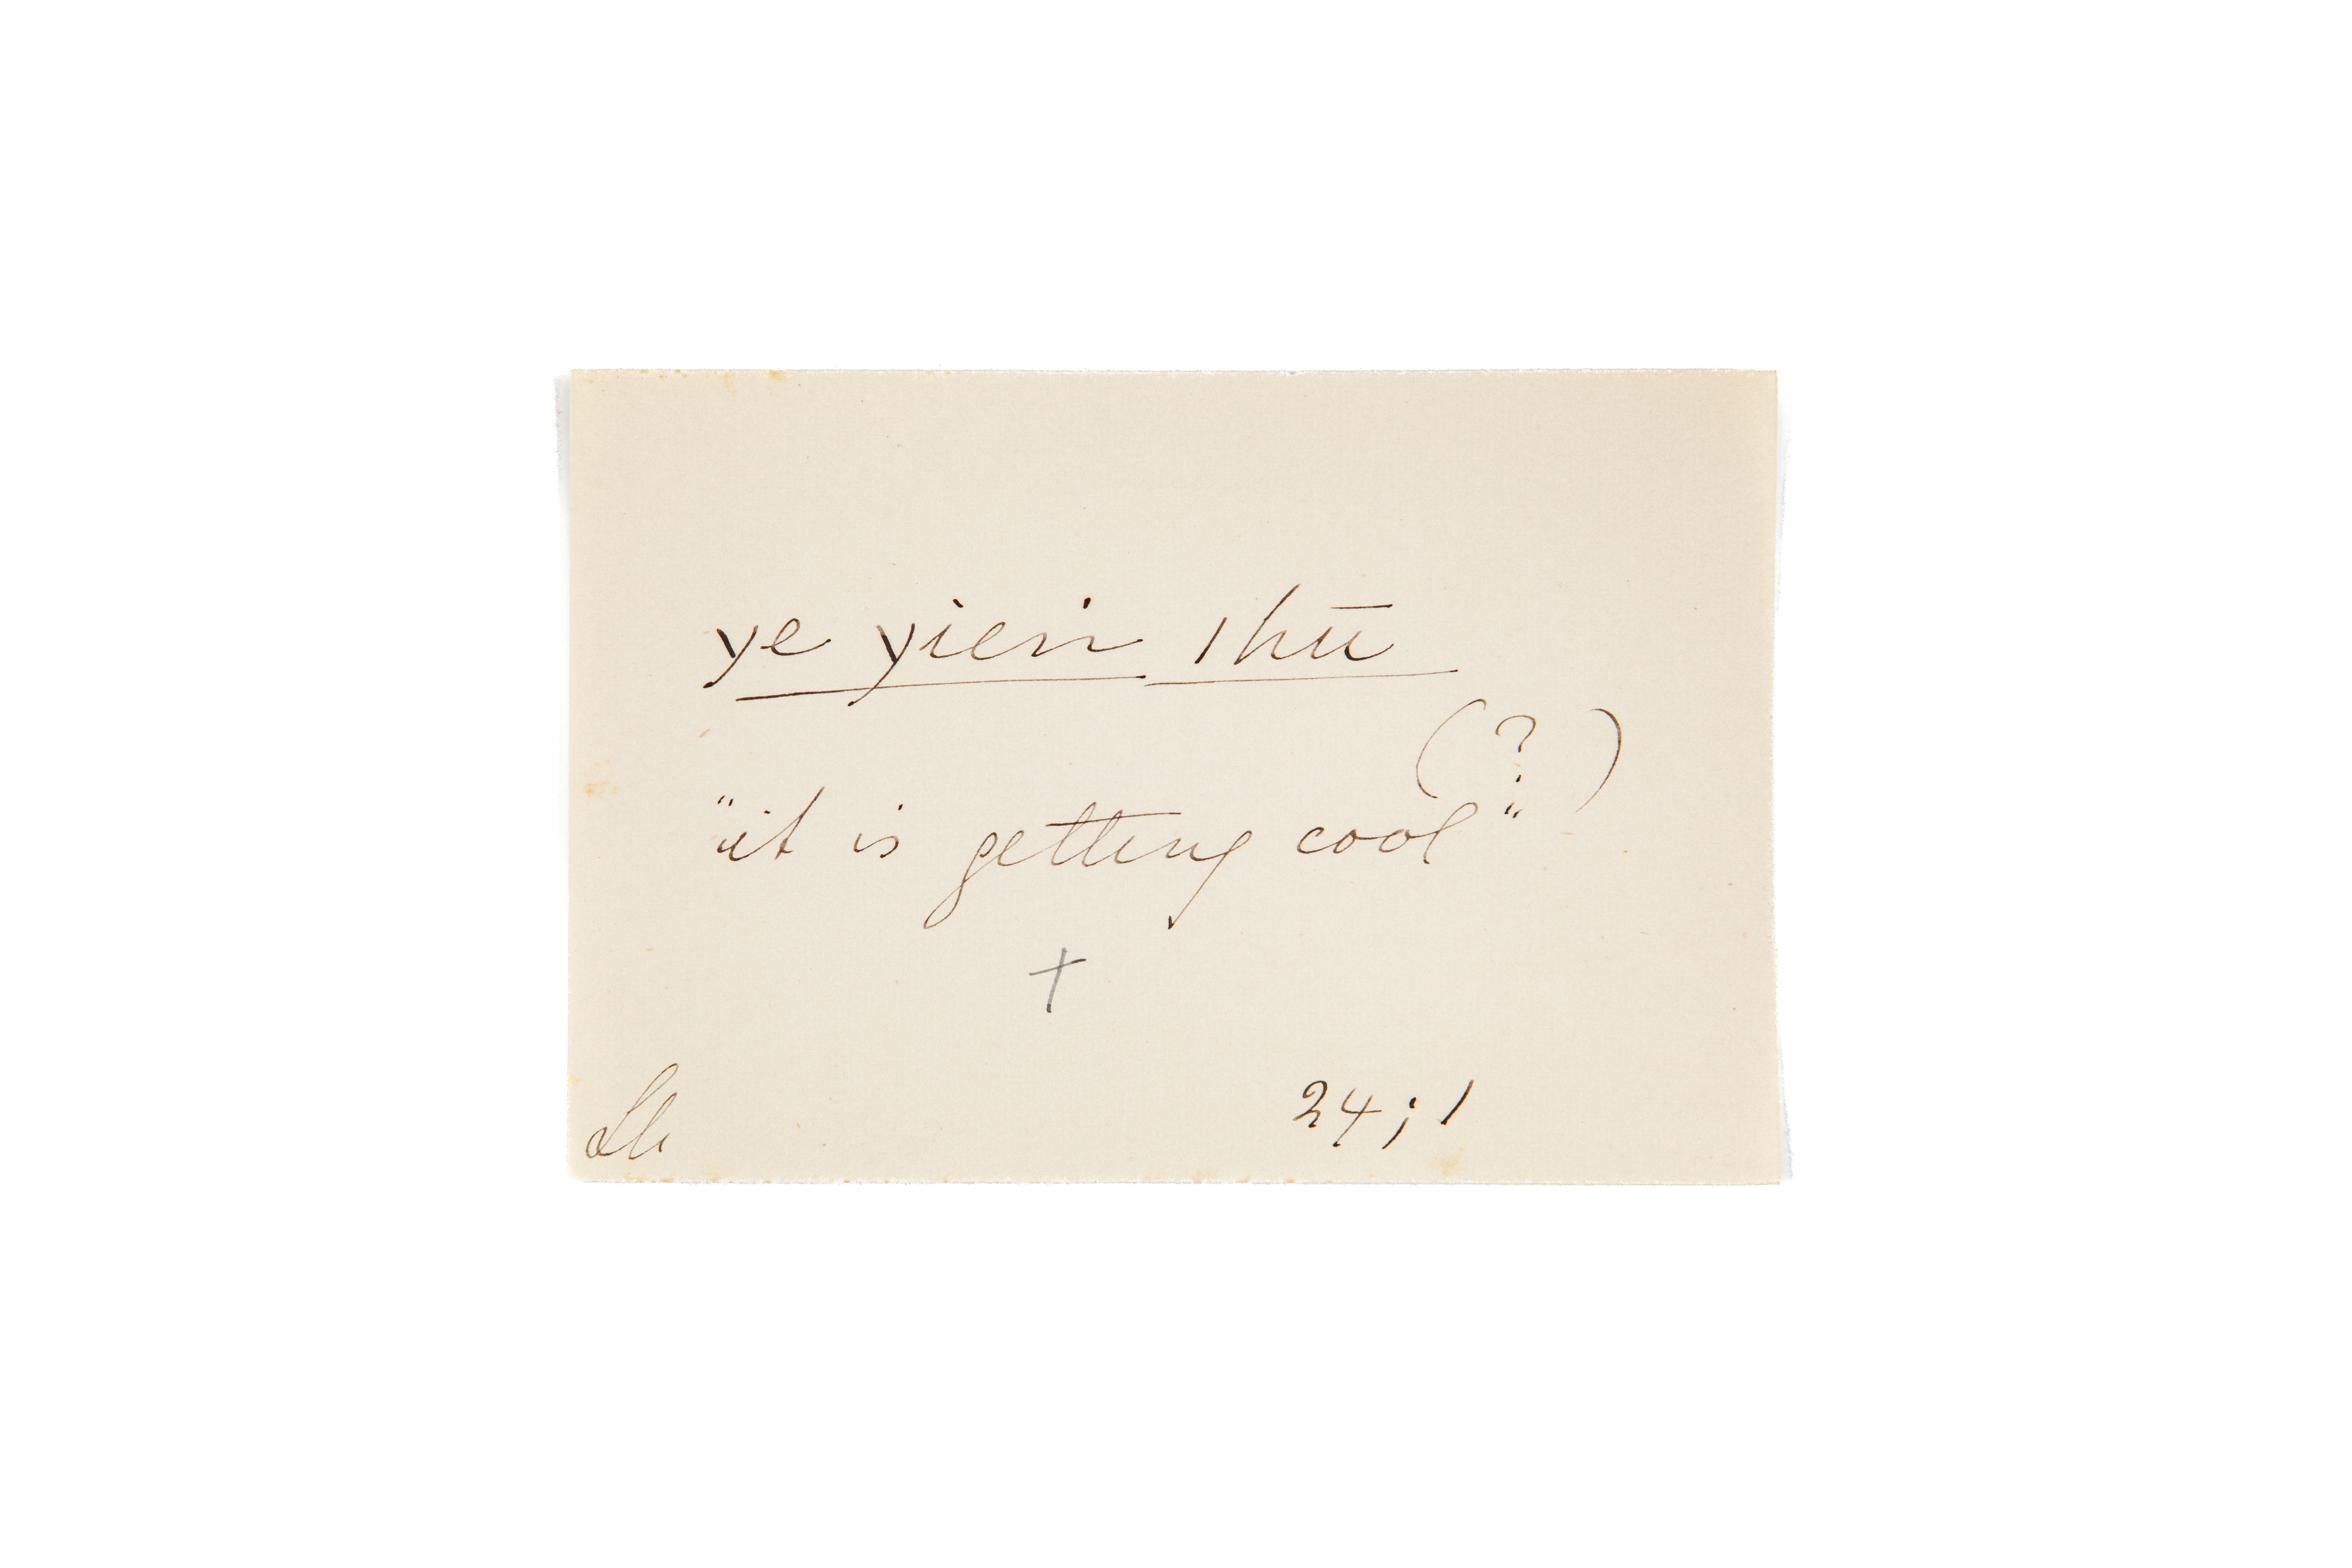 ye yień ıhū
(?)
"it is getting cool"
+
24 ; 1